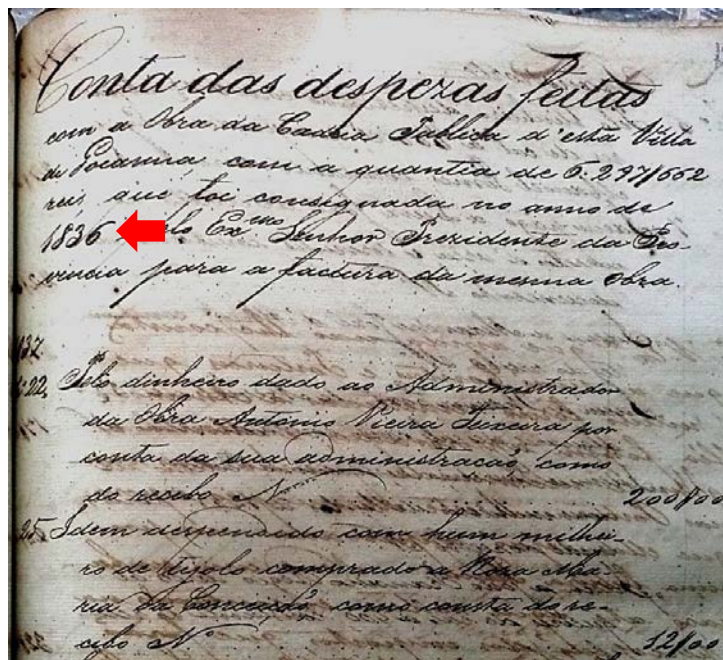 Conta das despezas feitas
com a Obra da Cadeia Publica d'esta Villa
de Goianna, com a quantia de 6.297/662
reis, que foi consignada no anno de
1836 Ex.mo Senhor Prezidente da Pro-
vincia para a factura da mesma obra.
Pelo dinheiro dado ao Administrador
da Obra Antonio Vieira Teixeira por
conta da sua administração, como
do recibo N
25 Idem despendido com hum milhei-
ro de tijolo comprado a Roza Ma-
ria da Conceição, como consta do re-
cibo N.